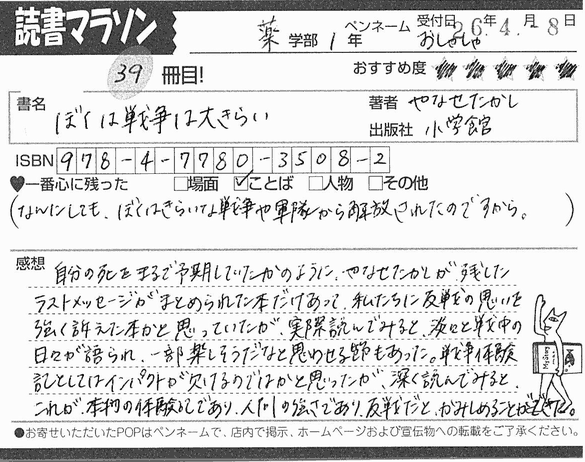 読書マラソン
薬 学部 1 年 ペンネーム おしゃしゃ 受付日 26年 4月 8日
39 冊目! おすすめ度
書名 ぼくは戦争は大きらい
著者 やなせたかし
出版社 小学館
ISBN 978-4-7780-3508-2
♥一番心に残った □場面 ☑ことば □人物 □その他
(なんにしても、ぼくはきらいな戦争や軍隊から解放されたのですから。)
感想 自分の死をまるで予期していたかのように、やなせたかしが残した
ラストメッセージがまとめられた本だけあって、私たちに反戦の思いを
強く訴えた本かと思っていたが、実際読んでみると、淡々と戦中の
日々が語られ、一部楽しそうだなと思わせる節もあった。戦争体験
記としてはインパクトが欠けるのではないかと思ったが、深く読んでみると、
これが、本物の体験記であり、人間の強さであり、反戦だと、かみしめることができた。
●お寄せいただいたPOPはペンネームで、店内で掲示、ホームページおよび宣伝物への転載をご了承ください。